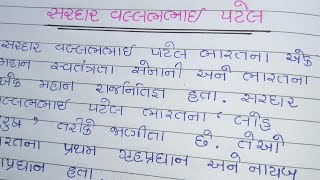 સરદાર વલ્લભભાઈ પટેલ
સરદાર વલ્લભભાઈ પટેલ ભારતના એક
મહાન સ્વતંત્રતા સેનાની અને ભારતના
એક મહાન રાજનિતિજ્ઞ હતા. સરદાર
વલ્લભભાઈ પટેલ ભારતના 'લોહ
પુરુષ' તરીકે જાણીતા છે. તેઓ
ભારતના પ્રથમ ગૃહપ્રધાન અને નાયબ
પ્રધાન હતા.